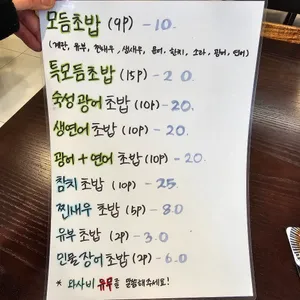 모듬초밥 (9P) - 10.
(계란, 유부, 찐새우, 생새우, 문어, 참치, 소라, 광어, 연어)
특모듬초밥 (15P) - 20.
숙성광어초밥 (10P) - 20.
생연어초밥 (10P) - 20.
광어+연어초밥 (10P) - 20.
참치초밥 (10P) - 25.
찐새우초밥 (5P) - 8.0
유부초밥 (2P) - 3.0
민물장어초밥 (2P) - 6.0
* 와사비 유무를 말씀해주세요!